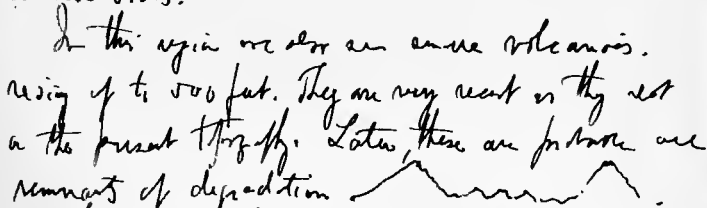 In this region we also see some volcanoes.
rising up to 500 feet. They are very recent as they rest
on the present topography. Later, these are probable
remnants of degradation